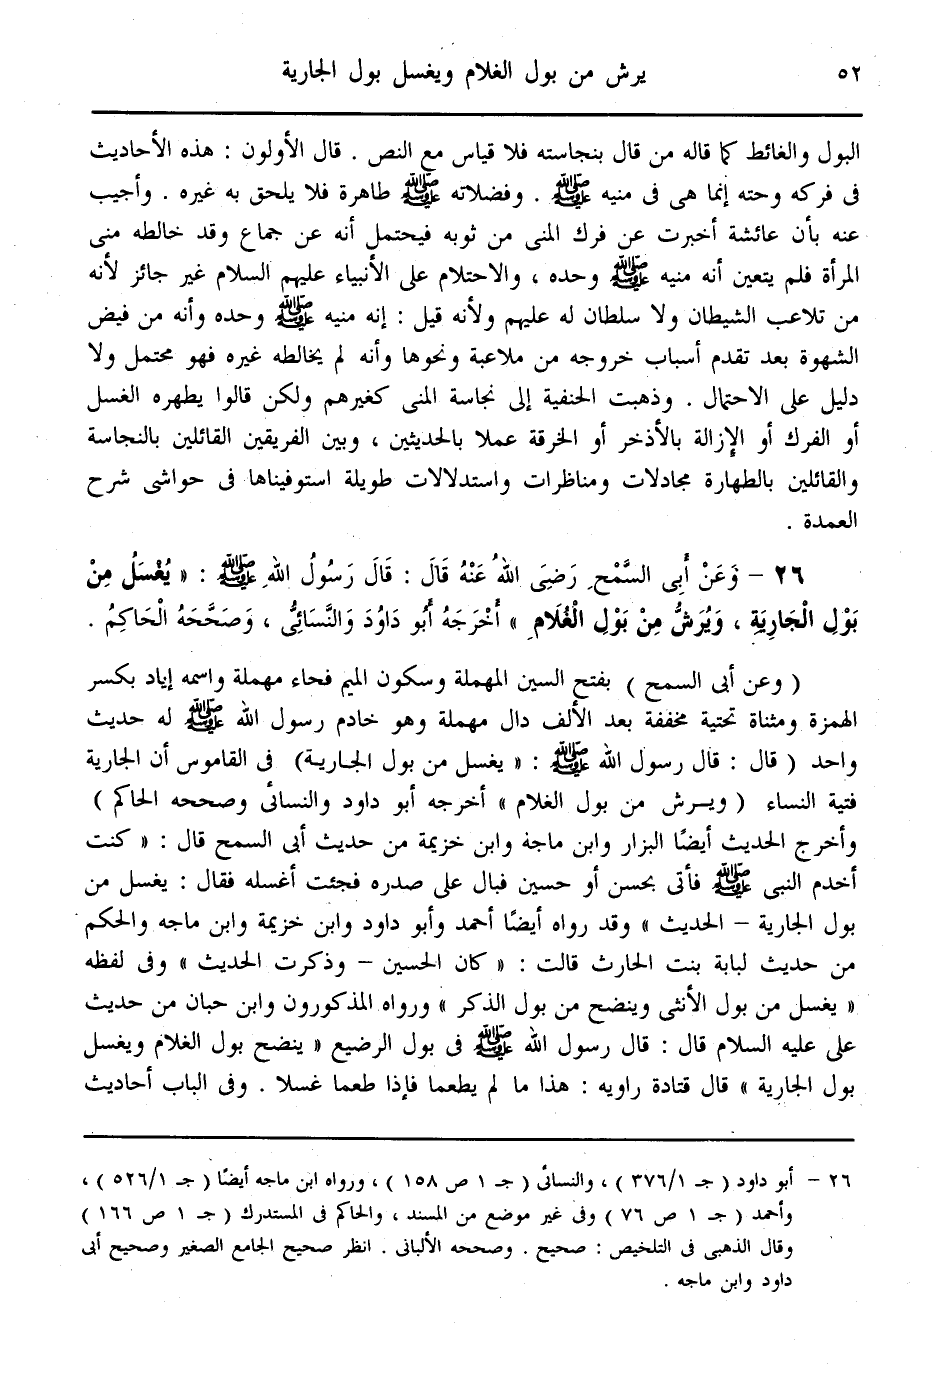 ٥٢ يرش من بول الغلام ويغسل بول الجارية
البول والغائط كما قاله من قال بنجاسته فلا قياس مع النص . قال الأولون : هذه الأحاديث
فى فركه وحته إنما هى فى منيه ﷺ . وفضلاته ﷺ طاهرة فلا يلحق به غيره . وأجيب
عنه بأن عائشة أخبرت عن فرك المنى من ثوبه فيحتمل أنه عن جماع وقد خالطه منى
المرأة فلم يتعين أنه منيه ﷺ وحده ، والاحتلام على الأنبياء عليهم السلام غير جائز لأنه
من تلاعب الشيطان ولا سلطان له عليهم ولأنه قيل : إنه منيه ﷺ وحده وأنه من فيض
الشهوة بعد تقدم أسباب خروجه من ملاعبة ونحوها وأنه لم يخالطه غيره فهو محتمل ولا
دليل على الاحتمال . وذهبت الحنفية إلى نجاسة المنى كغيرهم ولكن قالوا يطهره الغسل
أو الفرك أو الإزالة بالأذخر أو الخرقة عملا بالحديثين ، وبين الفريقين القائلين بالنجاسة
والقائلين بالطهارة مجادلات ومناظرات واستدلالات طويلة استوفيناها فى حواشى شرح
العمدة .
٢٦ – وَعَنْ أَبِى السَّمْحِ رَضِىَ اللهُ عَنْهُ قَالَ : قَالَ رَسُولُ اللهِ ﷺ : « يُغْسَلُ مِنْ
بَوْلِ الْجَارِيَةِ ، وَيُرَشُّ مِنْ بَوْلِ الْغُلَامِ » أَخْرَجَهُ أَبُو دَاوُدَ وَالنَّسَائِىُّ ، وَصَحَّحَهُ الْحَاكِمُ .
( وعن أبى السمح ) بفتح السين المهملة وسكون الميم فحاء مهملة واسمه إياد بكسر
الهمزة ومثناة تحتية مخففة بعد الألف دال مهملة وهو خادم رسول الله ﷺ له حديث
واحد ( قال : قال رسول الله ﷺ : « يغسل من بول الجارية) فى القاموس أن الجارية
فتية النساء ( ويرش من بول الغلام » أخرجه أبو داود والنسائى وصححه الحاكم )
وأخرج الحديث أيضًا البزار وابن ماجة وابن خزيمة من حديث أبى السمح قال : « كنت
أخدم النبى ﷺ فأتى بحسن أو حسين فبال على صدره فجئت أغسله فقال : يغسل من
بول الجارية – الحديث » وقد رواه أيضًا أحمد وأبو داود وابن خزيمة وابن ماجه والحكم
من حديث لبابة بنت الحارث قالت : « كان الحسين – وذكرت الحديث » وفى لفظه
« يغسل من بول الأنثى وينضح من بول الذكر » ورواه المذكورون وابن حبان من حديث
على عليه السلام قال : قال رسول الله ﷺ فى بول الرضيع « ينضح بول الغلام ويغسل
بول الجارية » قال قتادة راويه : هذا ما لم يطعما فإذا طعما غسلا . وفى الباب أحاديث
٢٦ – أبو داود ( جـ ٣٧٦/١ ) ، والنسائى ( جـ ١ ص ١٥٨ ) ، ورواه ابن ماجه أيضًا ( جـ ٥٢٦/١ ) ،
وأحمد ( جـ ١ ص ٧٦ ) وفى غير موضع من المسند ، والحاكم فى المستدرك ( جـ ١ ص ١٦٦ )
وقال الذهبى فى التلخيص : صحيح . وصححه الألبانى . انظر صحيح الجامع الصغير وصحيح أبى
داود وابن ماجه .